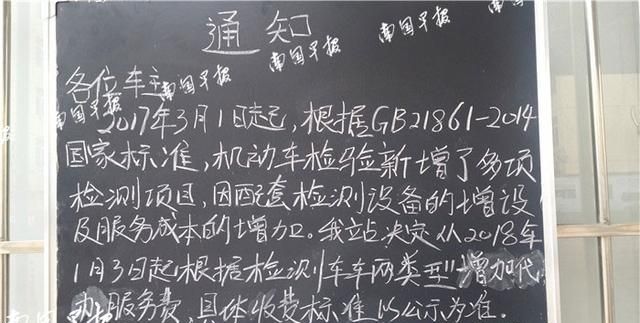 通知
各位车主
2017年3月1日起,根据GB21861-2014
国家标准,机动车检验新增了多项
检测项目,因配套检测设备的增设
及服务成本的增加。我站决定从2018年
1月3日起根据检测车车两类型"增加代
办服务费,具体收费标准以公示为准。
南国早报
南国早报
南国早报
南国早报
南国早报
南国早报